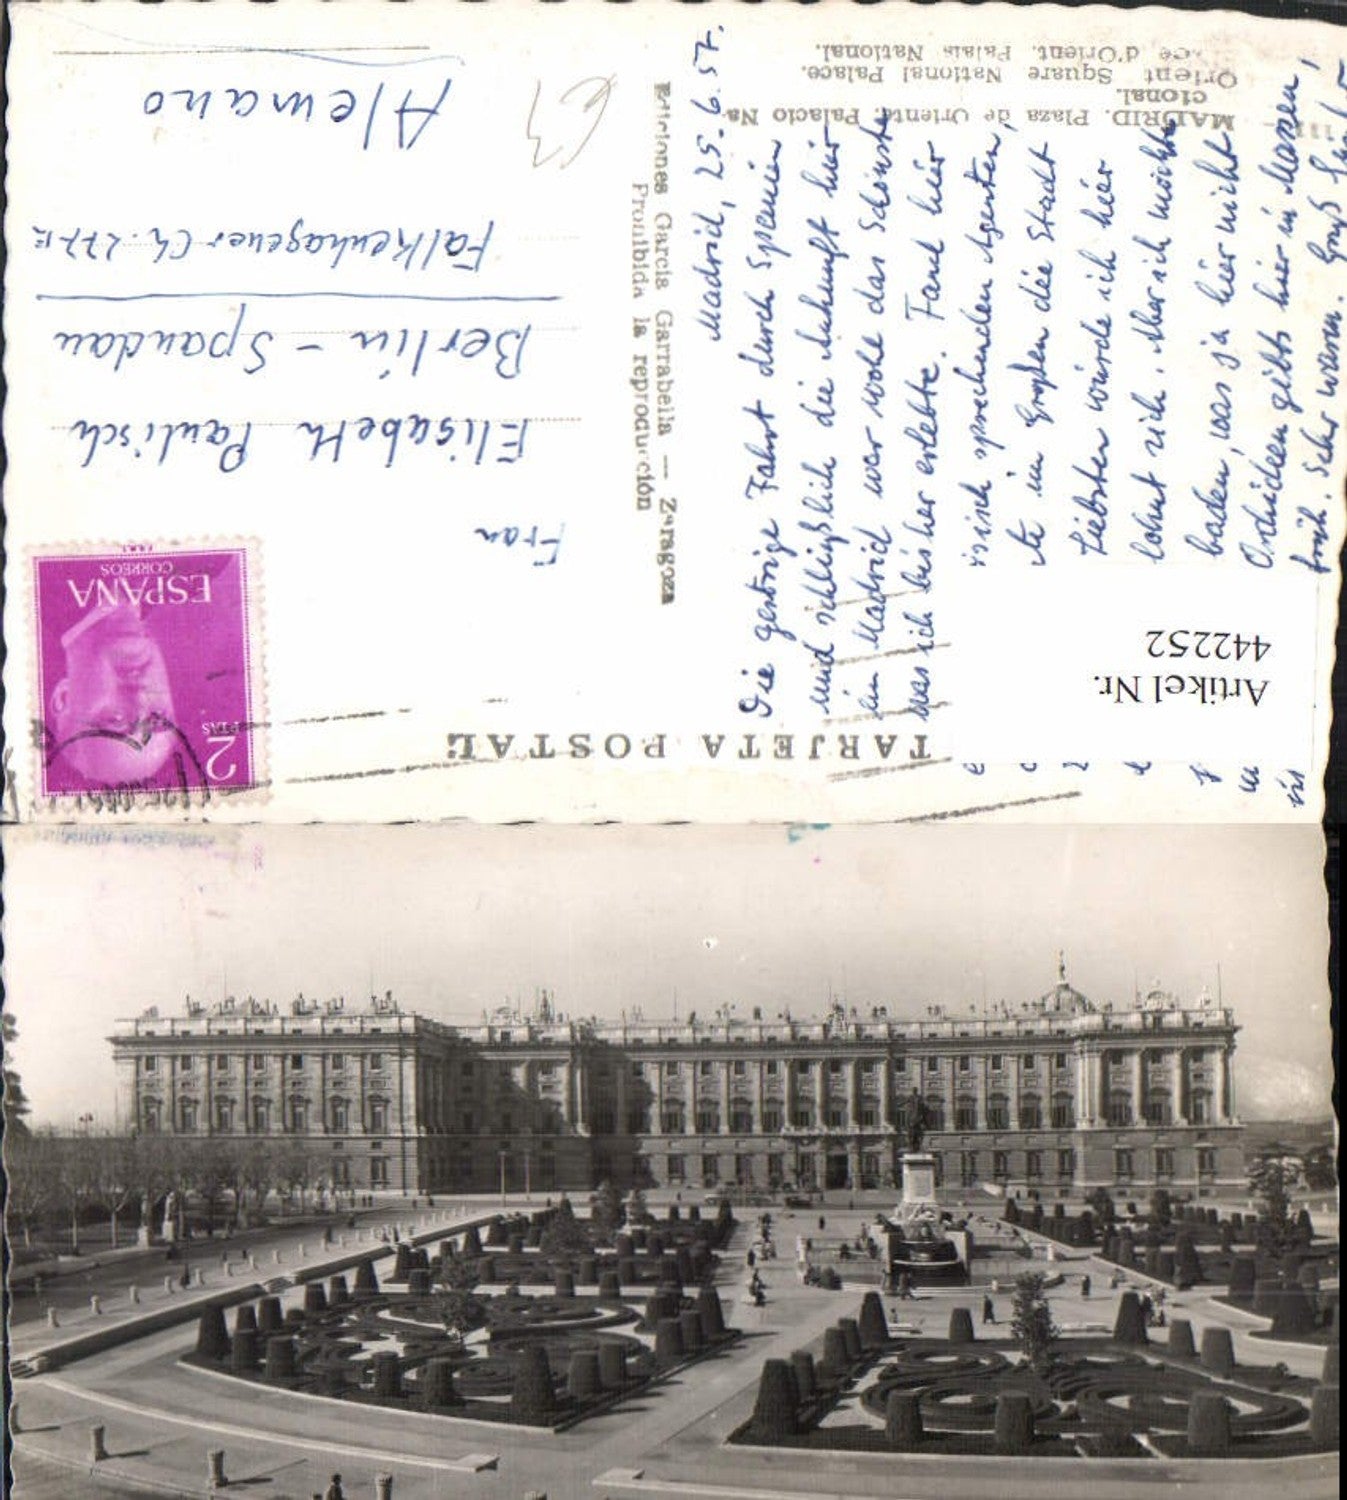 MADRID. Plaza de Oriente. Palacio Na-
cional.
Orient Square National Palace.
d'Orient. Palais National.
TARJETA POSTAL
Ediciones Garcia Garrabella — Zaragoza
Prohibida la reproducción
Madrid, 25.6.57.
Die gestrige Fahrt durch Spanien
und schließlich die Ankunft hier
in Madrid war wohl das Schönste
was ich bisher erlebte. Fand hier
sprechenden Agenten,
im Großen die Stadt
Liebsten würde ich hier
lohnt sich. Aber ich möchte
baden, was ja hier nicht
Orchideen gibts hier in Massen,
früh. Sehr warm. Gruß
ESPAÑA
CORREOS
2 PTAS
Frau
Elisabeth Paulisch
Berlin - Spandau
Falkenhagener Ch.
Alemano
Artikel Nr.
442252